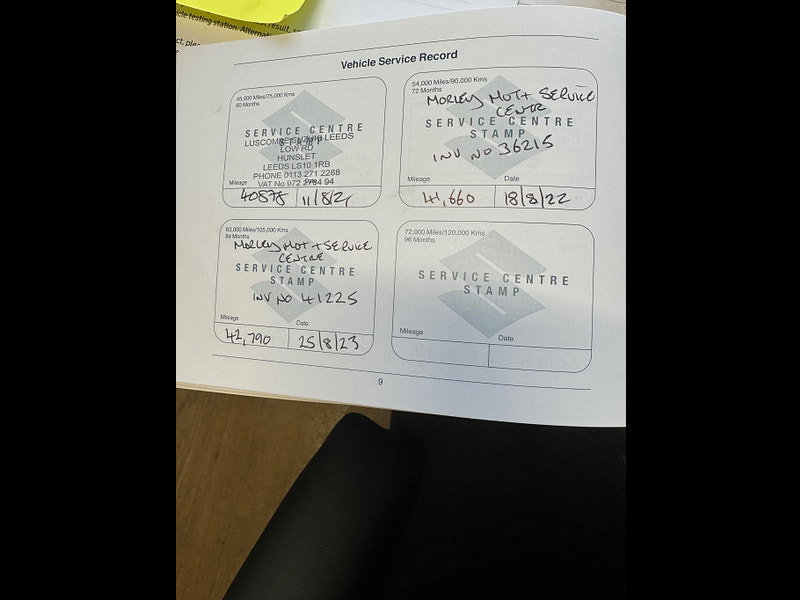 result, so
cle testing station. Alternati
ct, plea
Vehicle Service Record
45,000 Miles/75,000 Kms
60 Months
SERVICE CENTRE
STAMP
LUSCOMBE SUZUKI LEEDS
LOW RD
HUNSLET
LEEDS LS10 1RB
PHONE 0113 271 2288
VAT No 972 2784 94
Mileage
Date
40878
11/8/21
54,000 Miles/90,000 Kms
72 Months
MORLEY MOT + SERVICE
CENTRE
SERVICE CENTRE
STAMP
INV NO 36215
Mileage
Date
41,660
18/8/22
63,000 Miles/105,000 Kms
84 Months
MORLEY MOT + SERVICE
CENTRE
SERVICE CENTRE
STAMP
INV NO 41225
Mileage
Date
42,790
25/8/23
72,000 Miles/120,000 Kms
96 Months
SERVICE CENTRE
STAMP
Mileage
Date
9